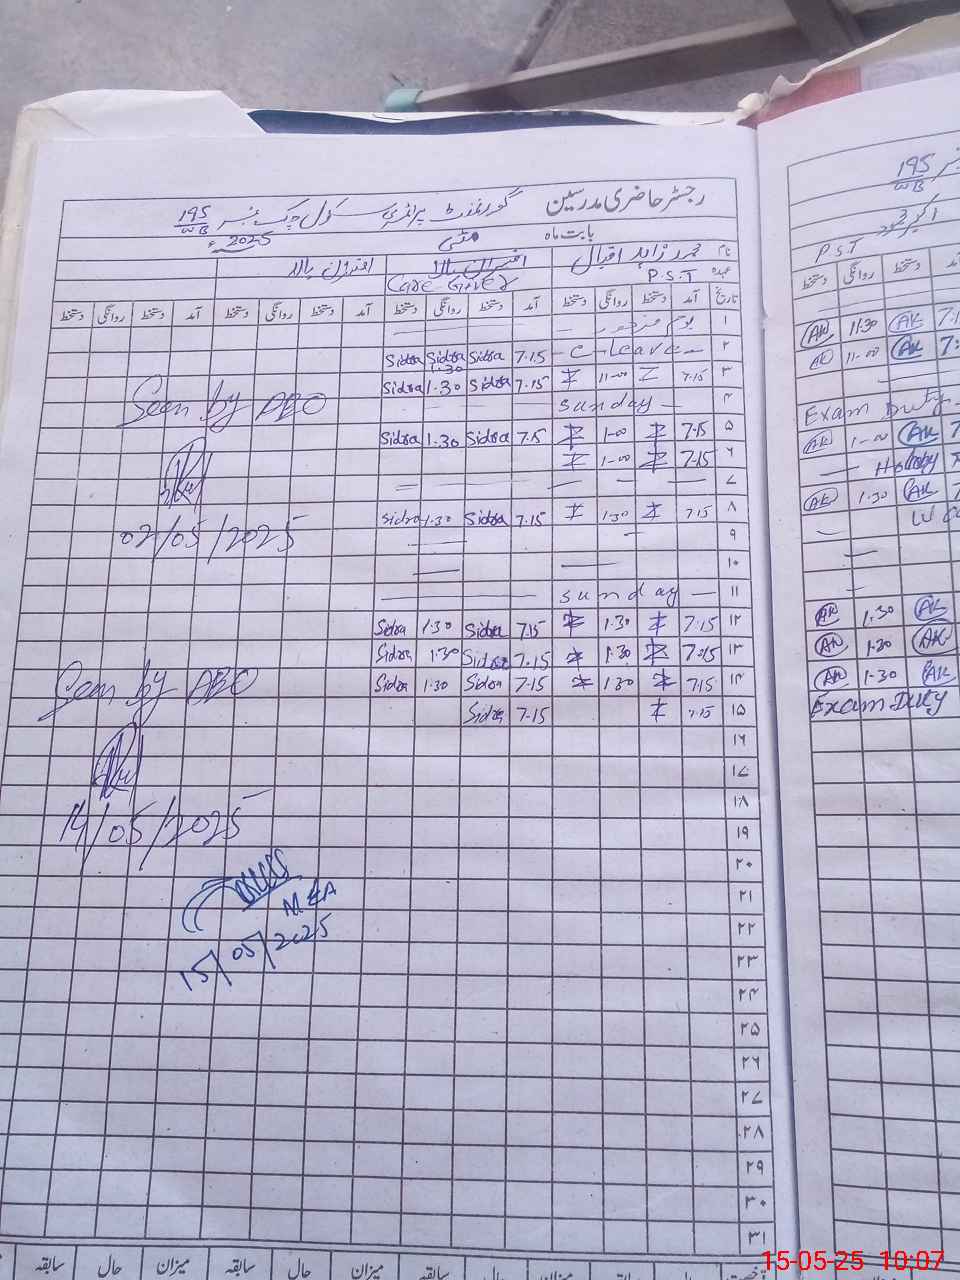 رجسٹر حاضری مدرسین گورنمنٹ پرائمری سکول چک نمبر 195/WB
بابت ماہ مئی 2025ء
نام محمد زاہد اقبال افسران بالا افسران بالا
عہدہ P.S.T Care Giver
تاریخ آمد دستخط روانگی دستخط آمد دستخط روانگی دستخط آمد دستخط روانگی دستخط آمد دستخط روانگی دستخط
۱ یوم مزدور
۲ C-leave 7.15 Sidra Sidra 1.30 Sidra
۳ 7.15 Z 11-00 Z 7.15 Sidra 1.30 Sidra
Seen by AEO
۴ Sunday
۵ 7.15 Z 1-00 Z 7.15 Sidra 1.30 Sidra
۶ 7.15 Z 1-00 Z
۷
۸ 7.15 Z 1.30 Z 7.15 Sidra 1.30 Sidra
02/05/2025
۹
۱۰
۱۱ Sunday
۱۲ 7.15 Z 1.30 Z 7.15 Sidra 1.30 Sidra
۱۳ 7:15 Z 1.30 Z 7.15 Sidra 1.30 Sidra
۱۴ 7.15 Z 1.30 Z 7.15 Sidra 1.30 Sidra
Seen by AEO
۱۵ 7.15 Z 7.15 Sidra
۱۶
۱۷
۱۸
14/05/2025
۱۹
۲۰
۲۱
MEA
۲۲
15/05/2025
۲۳
۲۴
۲۵
۲۶
۲۷
۲۸
۲۹
۳۰
۳۱
میزان حال سابقہ میزان حال سابقہ میزان حال سابقہ
195/WB
P.S.T
آمد دستخط روانگی دستخط
AK 11:30 AK
AK 11-00 AK
Exam Duty
AK 1-00 AK
Holiday
AK 1.30 AK
AK 1.30 AK
AK 1.30 AK
AK 1-30 AK
Exam Duty
15-05-25 10:07